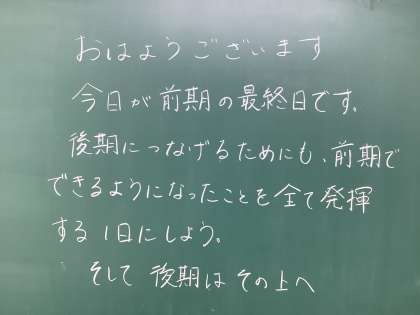 おはようございます
今日が前期の最終日です。
後期につなげるためにも、前期で
できるようになったことを全て発揮
する1日にしよう。
そして 後期は その上へ